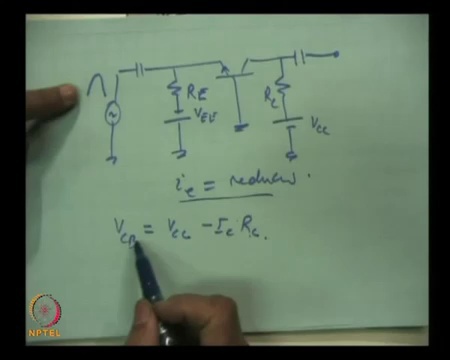 R_E
V_EE
R_C
V_CC
i_e = reduces.
V_CB = V_CC - I_C R_C.
NPTEL